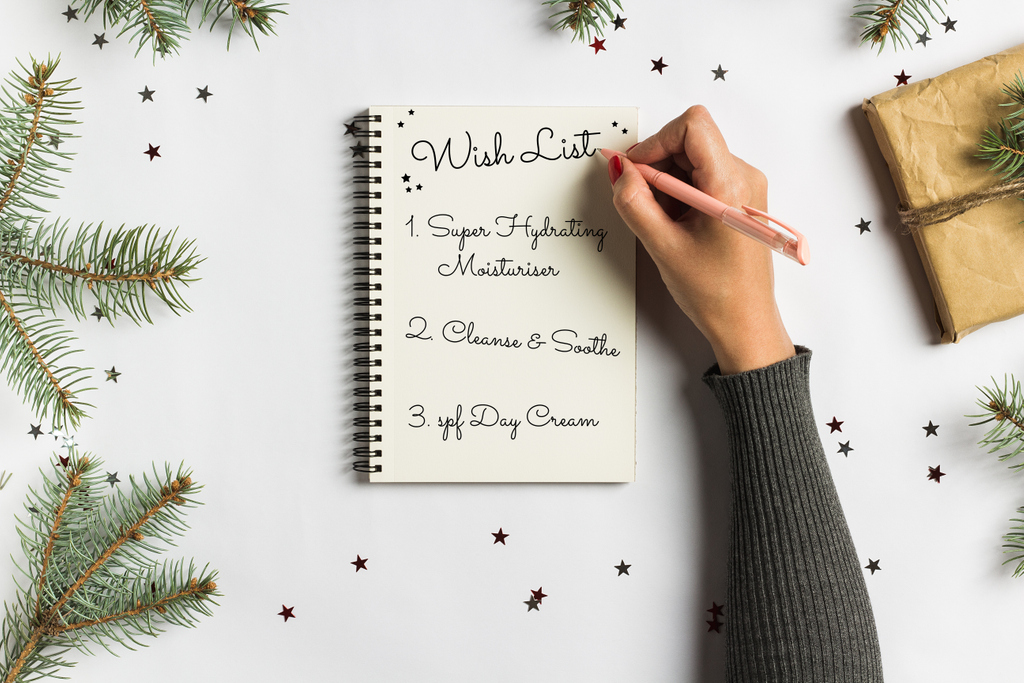 Wish List
1. Super Hydrating
Moisturiser
2. Cleanse & Soothe
3. spf Day Cream